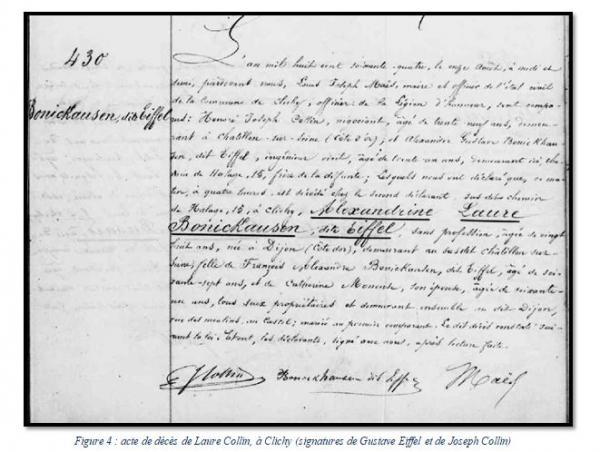 430
Bonickausen, dite Eiffel
L'an mil huit cent soixante-quatre, le onze Août, à midi et
demi, pardevant nous, Louis Joseph Maës, maire et officier de l'état civil
de la Commune de Clichy, officier de la Légion d'honneur, sont compa-
rus: Henri Joseph Collin, négociant, âgé de trente neuf ans, demeu-
rant à Châtillon-sur-Seine (Côte d'or); et Alexandre Gustave Bonickhau-
sen, dit Eiffel, ingénieur civil, âgé de trente un ans, demeurant ici, che-
min de Halage, 15, frère de la défunte; Lesquels nous ont déclaré que, ce ma-
tin, à quatre heures, est décédée chez le second déclarant, susdit chemin
de Halage, 15, à Clichy, Alexandrine Laure
Bonickausen, dite Eiffel, sans profession, âgée de vingt
huit ans, née à Dijon (Côte d'or), demeurant au susdit Châtillon sur
Seine; fille de François Alexandre Bonickausen, dit Eiffel, âgé de soi-
xante-sept ans, et de Catherine Moneuse, son épouse, âgée de soixante-
un ans, tous deux propriétaires et demeurant ensemble au dit Dijon,
rue des moulins, au Castel; mariée au premier comparant. Le dit décès constaté sui-
vant la loi. Et ont, les déclarants, signé avec nous, après lecture faite.
J Collin Bonickhausen dit Eiffel Maës
Figure 4 : acte de décès de Laure Collin, à Clichy (signatures de Gustave Eiffel et de Joseph Collin)